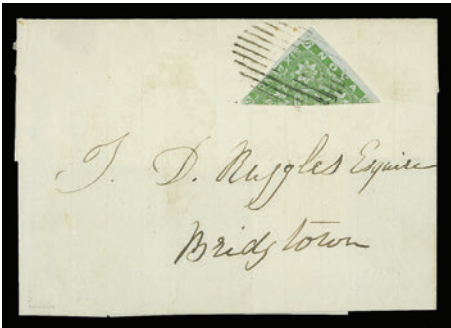 NOVA
T. D. Ruggles Esquire
Bridgtown